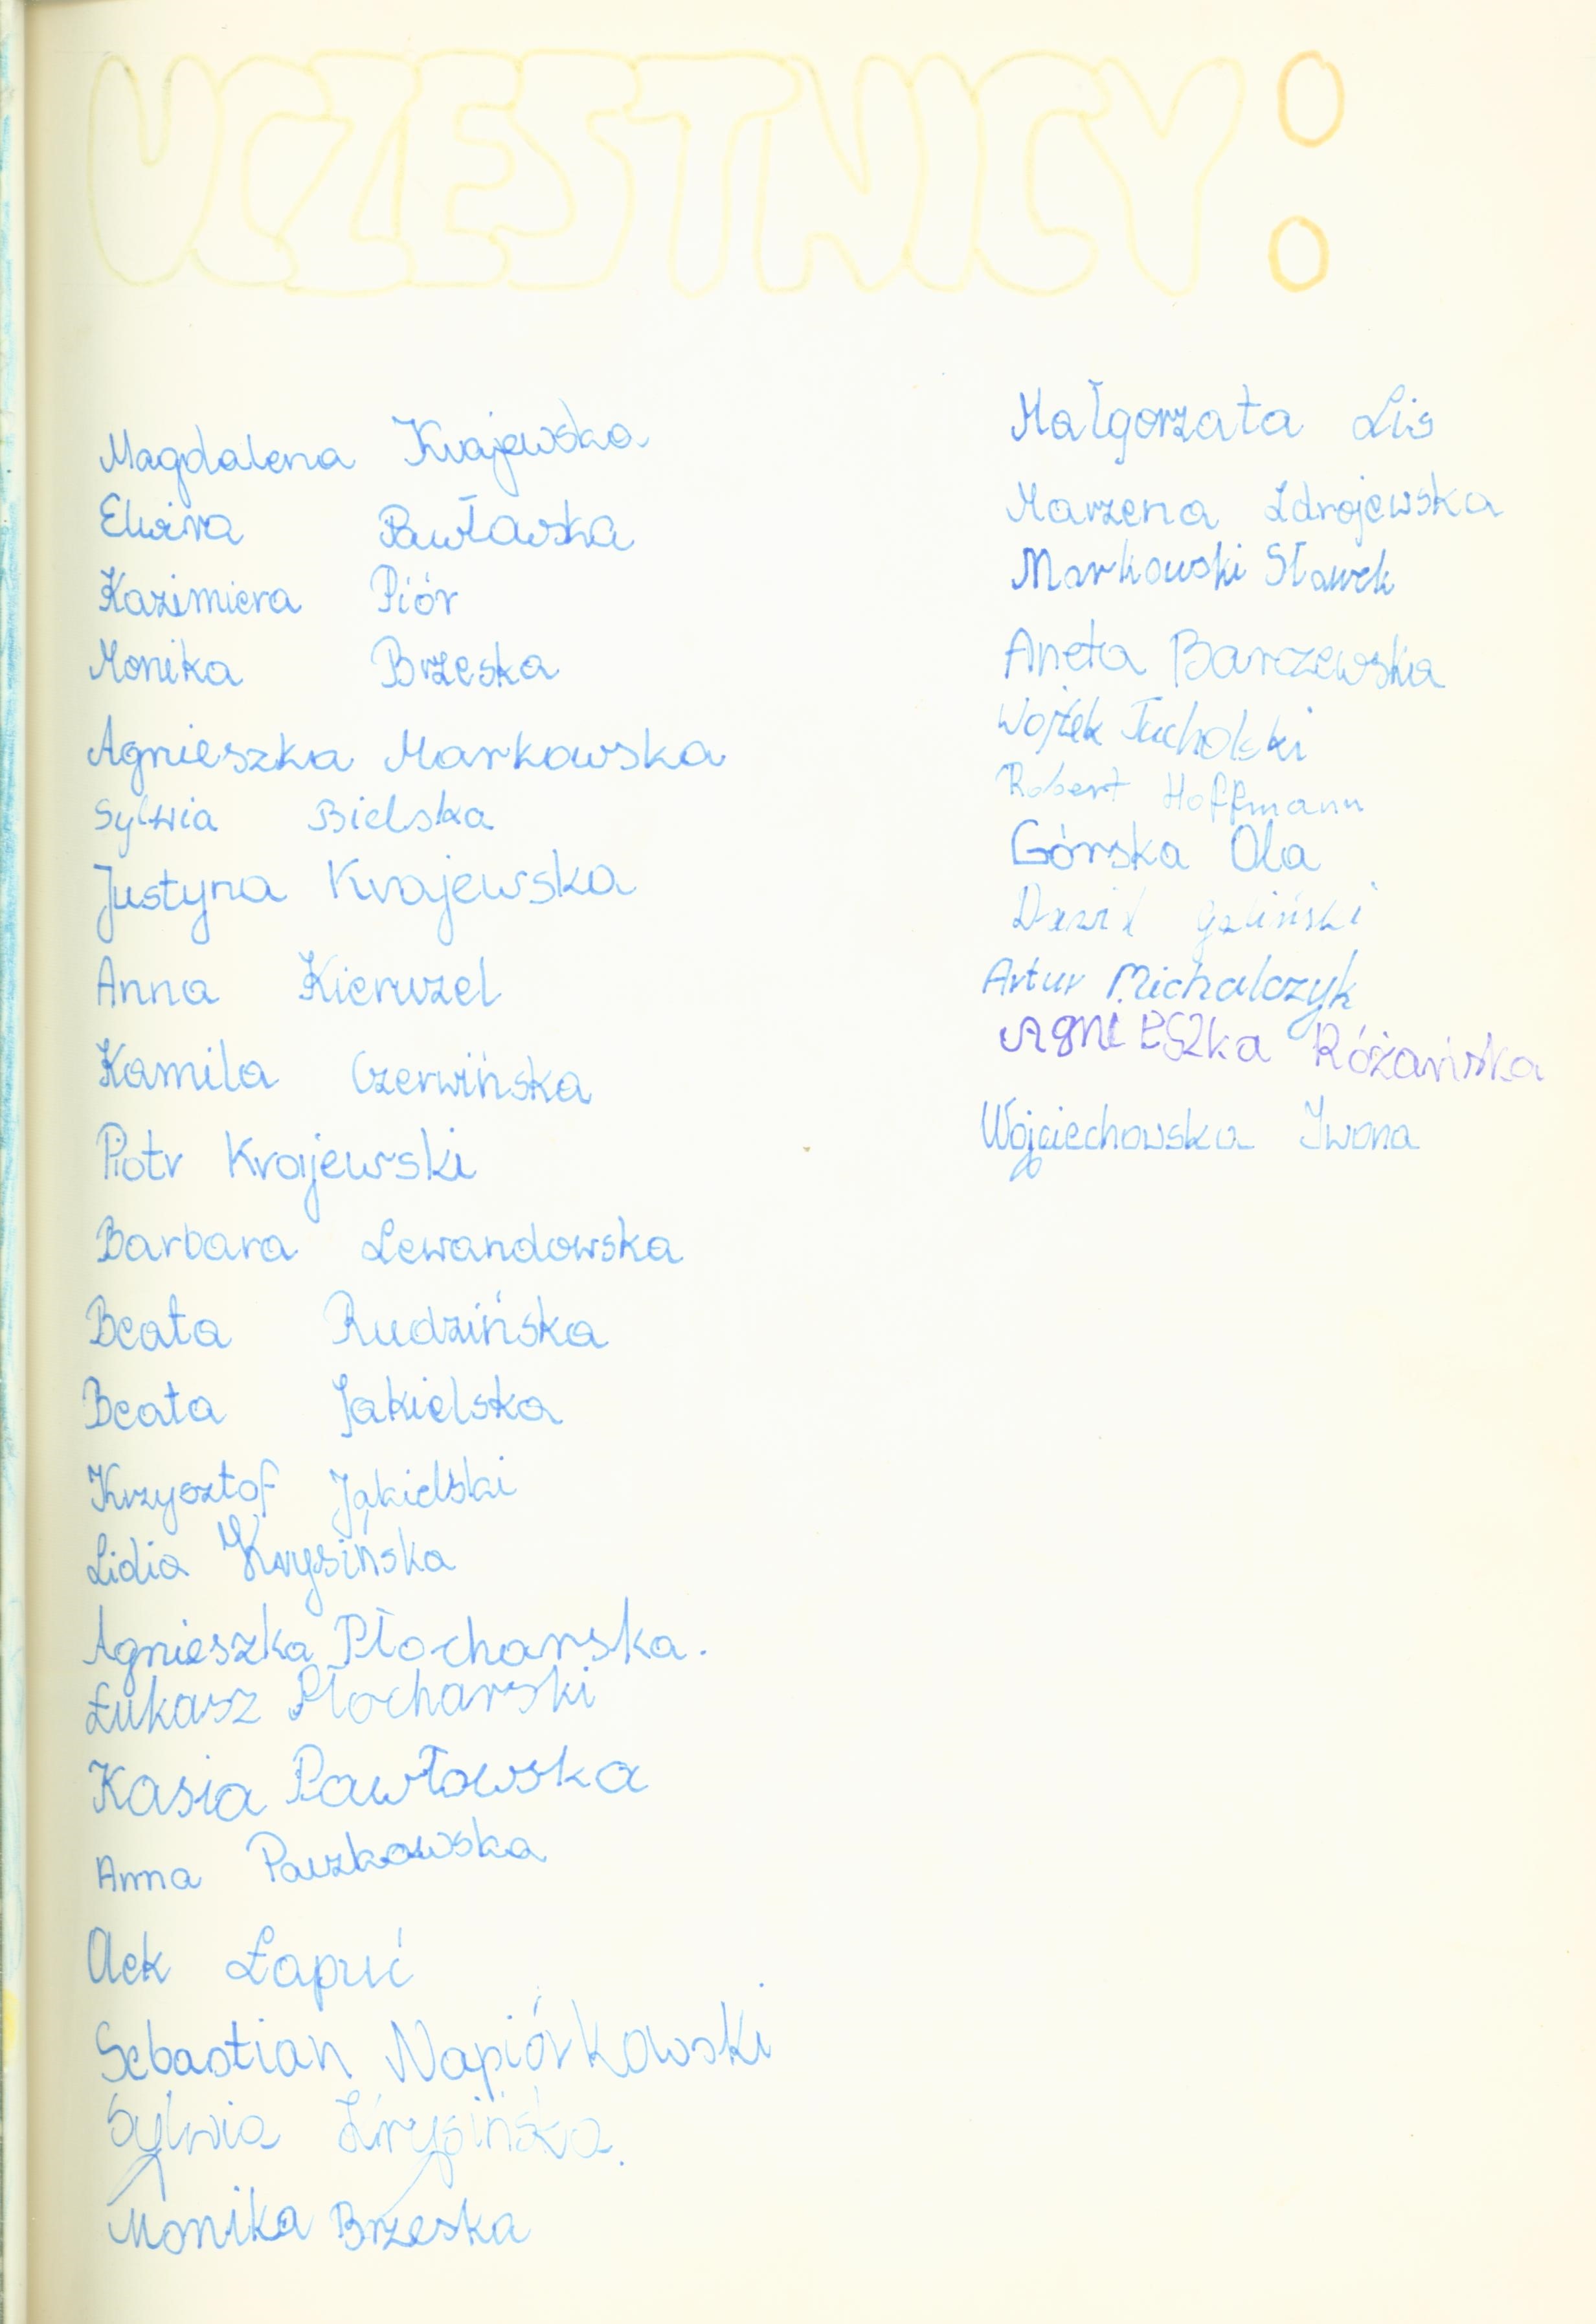 UCZESTNICY:
Magdalena Krajewska
Elwira Pawłowska
Kazimiera Piór
Monika Brzeska
Agnieszka Markowska
Sylwia Bielska
Justyna Krajewska
Anna Kierwzel
Kamila Czerwińska
Piotr Krajewski
Barbara Lewandowska
Beata Rudzińska
Beata Jakielska
Krzysztof Jąkielski
Lidia Krysińska
Agnieszka Płocharska.
Łukasz Płocharski
Kasia Pawłowska
Anna Paczkowska
Olek Łapuć
Sebastian Napiórkowski
Sylwia Krysińska.
Monika Brzeska
Małgorzata Lis
Marzena Zdrojewska
Markowski Sławek
Aneta Barczewska
Wojtek Tucholski
Robert Hoffmann
Górska Ola
Dawid Galiński
Artur Michalczyk
AgNIESZka Różańska
Wojciechowska Iwona